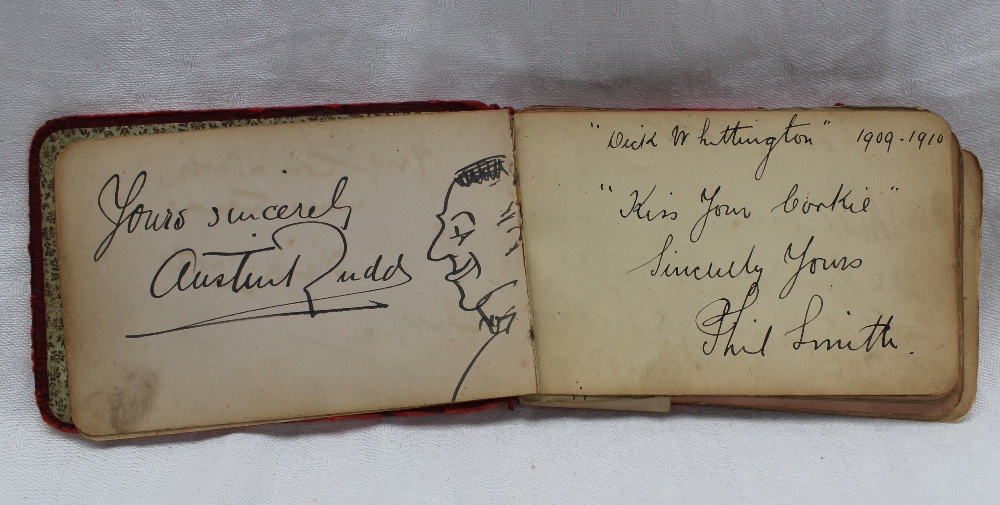 Yours sincerely
Austin Rudd
"Dick Whittington" 1909-1910
"Kiss Your Cookie"
Sincerely Yours
Phil Smith.